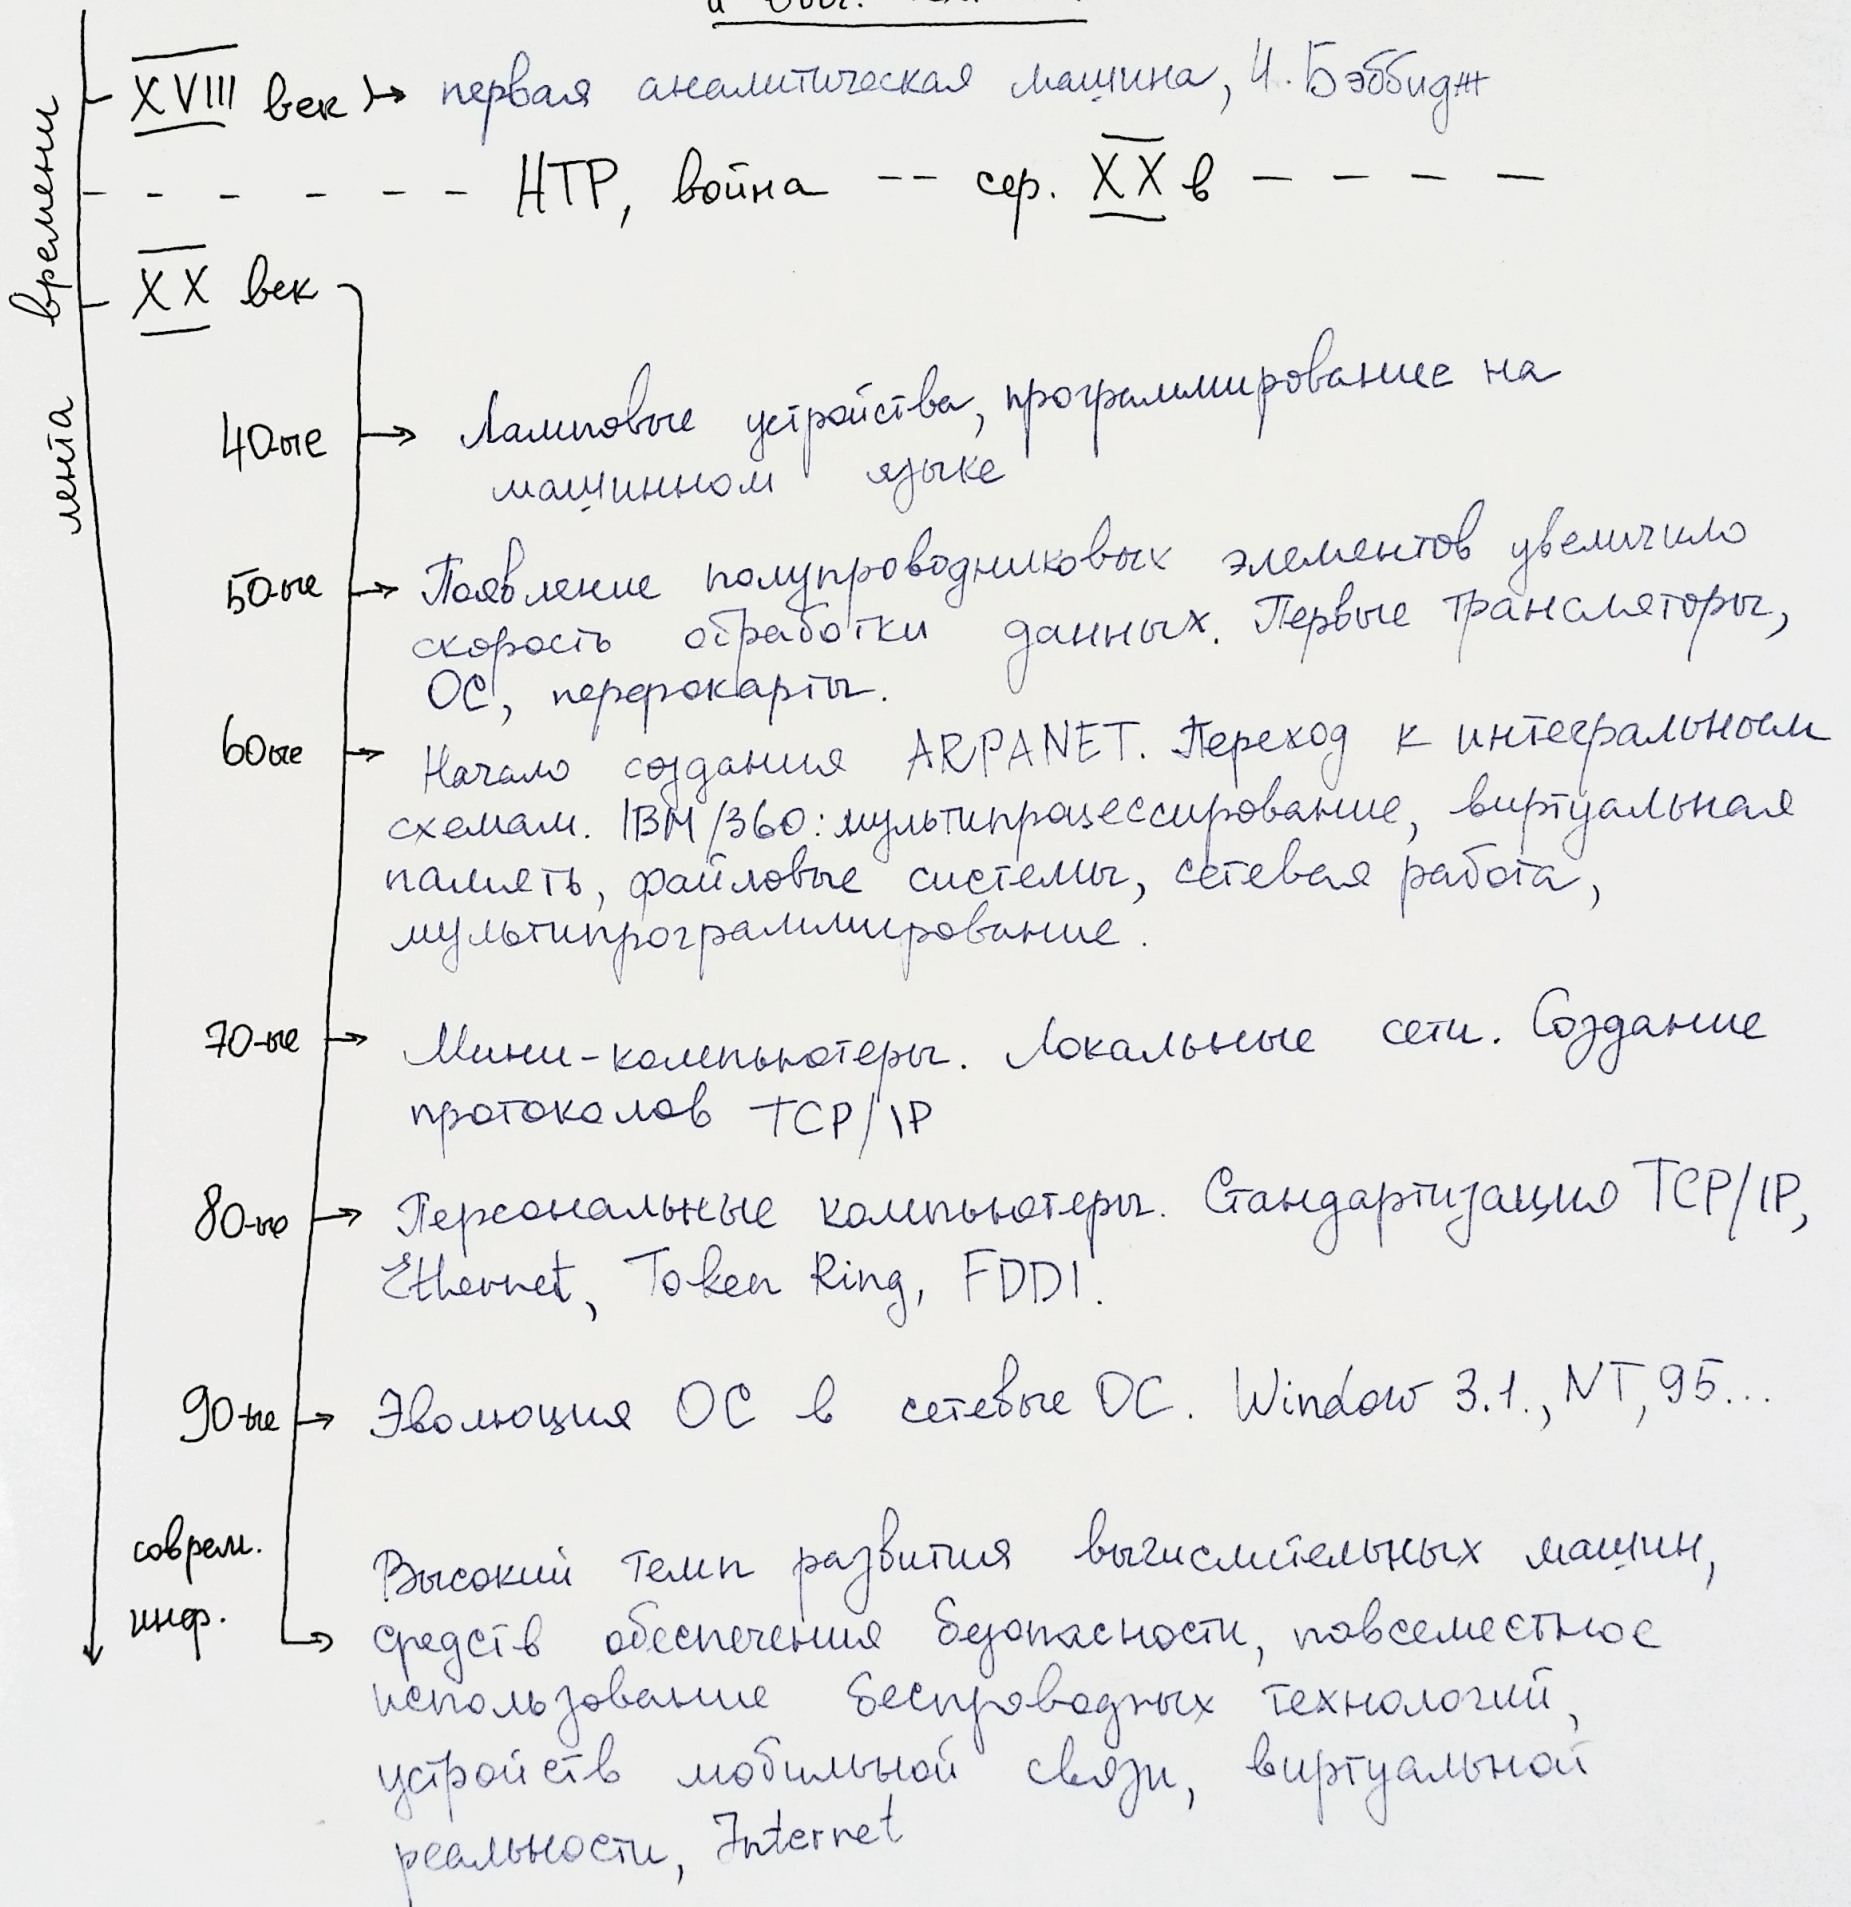 и
лента времени
XVIII век → первая аналитическая машина, Ч. Бэббидж
- - - - - - НТР, война -- сер. XX в - - - -
XX век
40-ые → Ламповые устройства, программирование на
машинном языке
50-ые → Появление полупроводниковых элементов увеличило
скорость обработки данных. Первые трансляторы,
ОС, перфокарты.
60ые → Начало создания ARPANET. Переход к интегральным
схемам. IBM/360: мультипроцессирование, виртуальная
память, файловые системы, сетевая работа,
мультипрограммирование.
70-ые → Мини-компьютеры. Локальные сети. Создание
протоколов TCP/IP
80-ые → Персональные компьютеры. Стандартизация TCP/IP,
Ethernet, Token Ring, FDDI.
90-ые → Эволюция ОС в сетевые ОС. Window 3.1., NT, 95...
соврем.
инф. → Высокий темп развития вычислительных машин,
средств обеспечения безопасности, повсеместное
использование беспроводных технологий,
устройств мобильной связи, виртуальной
реальности, Internet